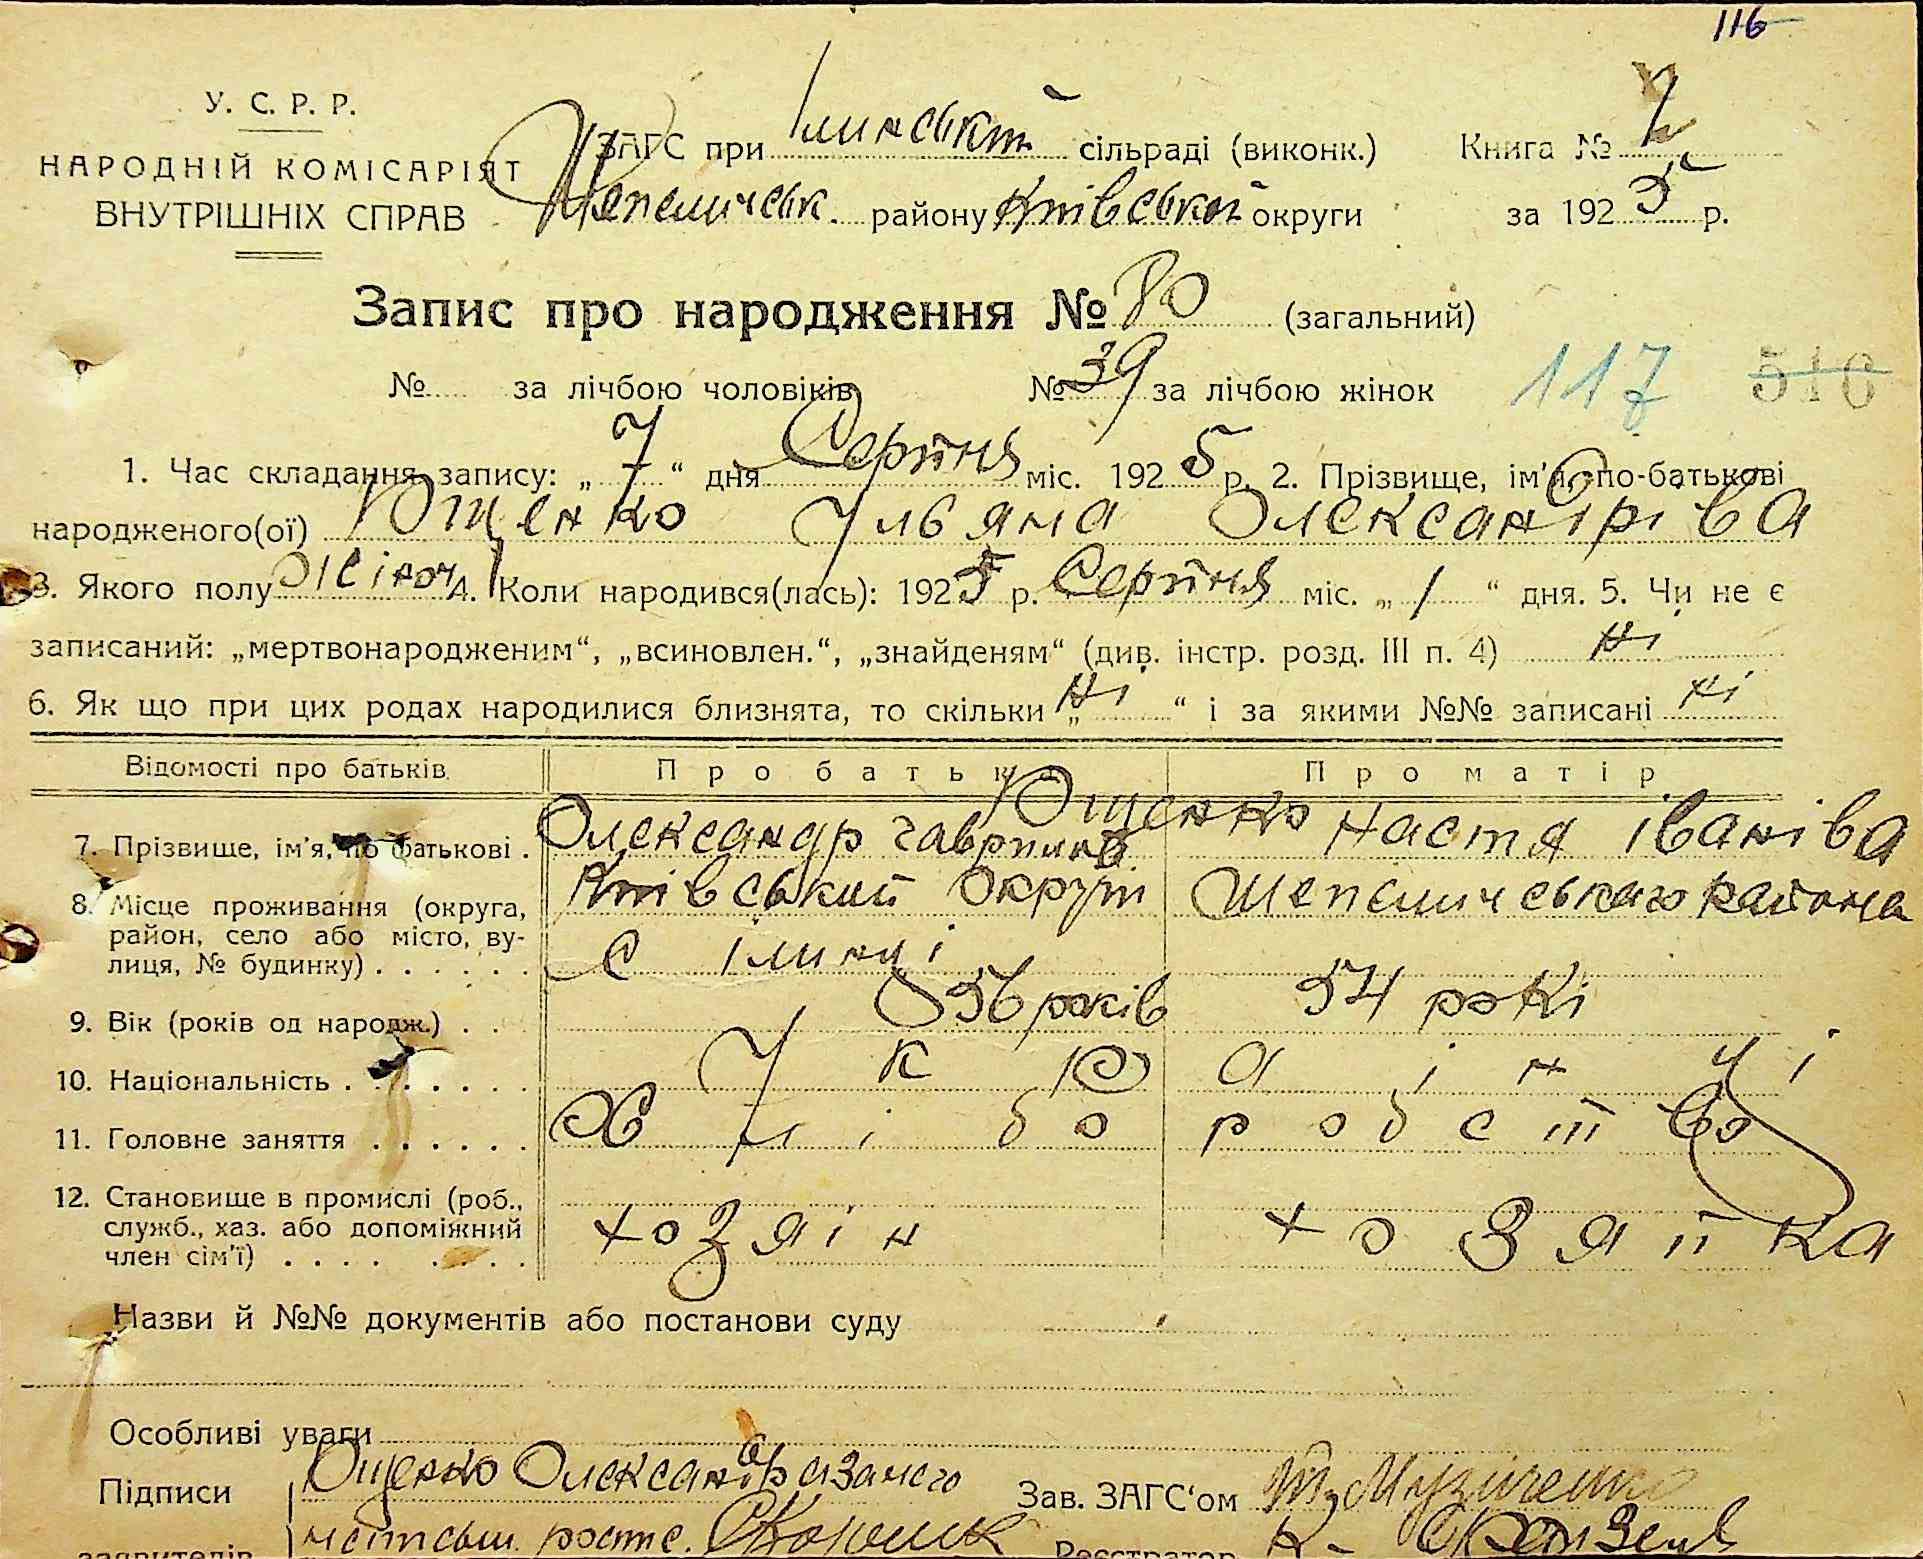 116
У. С. Р. Р.
НАРОДНІЙ КОМІСАРІЯТ
ВНУТРІШНІХ СПРАВ
ЗАГС при Ілинській сільраді (виконк.) Книга №
Шепеличськ. району Київської округи за 1925 р.
Запис про народження № 80 (загальний)
№ за лічбою чоловіків № 39 за лічбою жінок 117 516
1. Час складання запису: „7“ дня Серпня міс. 1925 р. 2. Прізвище, ім'я, по-батькові
народженого(ої) Ющенко Ульяна Олександріва
3. Якого полу жіноч 4. Коли народився(лась): 1925 р. Серпня міс. „1“ дня. 5. Чи не є
записаний: „мертвонародженим“, „всиновлен.“, „знайденям“ (див. інстр. розд. III п. 4) ні
6. Як що при цих родах народилися близнята, то скільки „ні“ і за якими №№ записані ні
Відомості про батьків Про батька Про матір
Ющенко
7. Прізвище, ім'я, по батькові . Олександр Гаврилів Настя Іваніва
8. Місце проживання (округа, район, село або місто, вулиця, № будинку) . . . . . . Київський округи Шепеличського района
с Ілинці
9. Вік (років од народж.) . . 56 років 54 рокі
10. Національність . . . . . . . Українці
11. Головне заняття . . . . . . Хліборобство
12. Становище в промислі (роб.,
служб., хаз. або допоміжний
член сім'ї) . . . . . . . хозяін хозяйка
Назви й №№ документів або постанови суду
Особливі уваги
Підписи Ющенко Олександр а за него
Зав. ЗАГС'ом
заявителів
Реєстратор К.